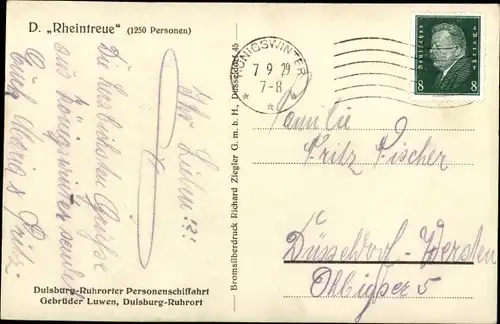 D. „Rheintreue“ (1250 Personen)
Ihr Lieben!!
Die herzlichsten Grüße
aus Königswinter sendet
Euch Maria & Fritz.
Duisburg-Ruhrorter Personenschiffahrt
Gebrüder Luwen, Duisburg-Ruhrort
Bromsilberdruck Richard Ziegler G. m. b. H., Düsseldorf 45
KÖNIGSWINTER
7 9 29
7-8
Deutsches Reich
8 8
Familie
Fritz Fischer
Düsseldorf-Wersten
5